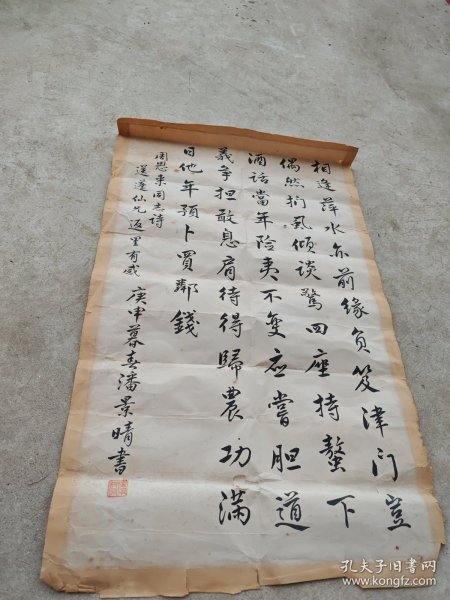 相逢萍水亦前緣負笈津门豈
偶然捫虱傾谈驚四座持螯下
酒話當年险夷不变应嘗胆道
義争担敢息肩待得歸農功满
日他年预卜買鄰錢
周恩来同志诗
送蓬仙兄返里有感
庚申暮春潘景晴書
孔夫子旧书网
www.kongfz.com